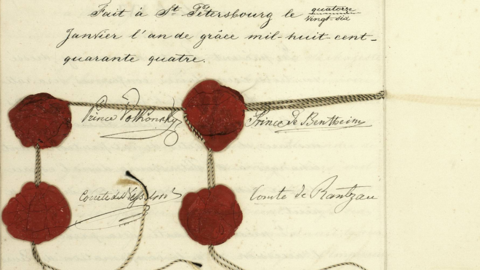 Fait à St. Pétersbourg le quatorze
vingt-six
Janvier l'an de grâce mil-huit-cent-
quarante quatre.
Prince Prince de Bentheim
Comte de Comte de Rantzau